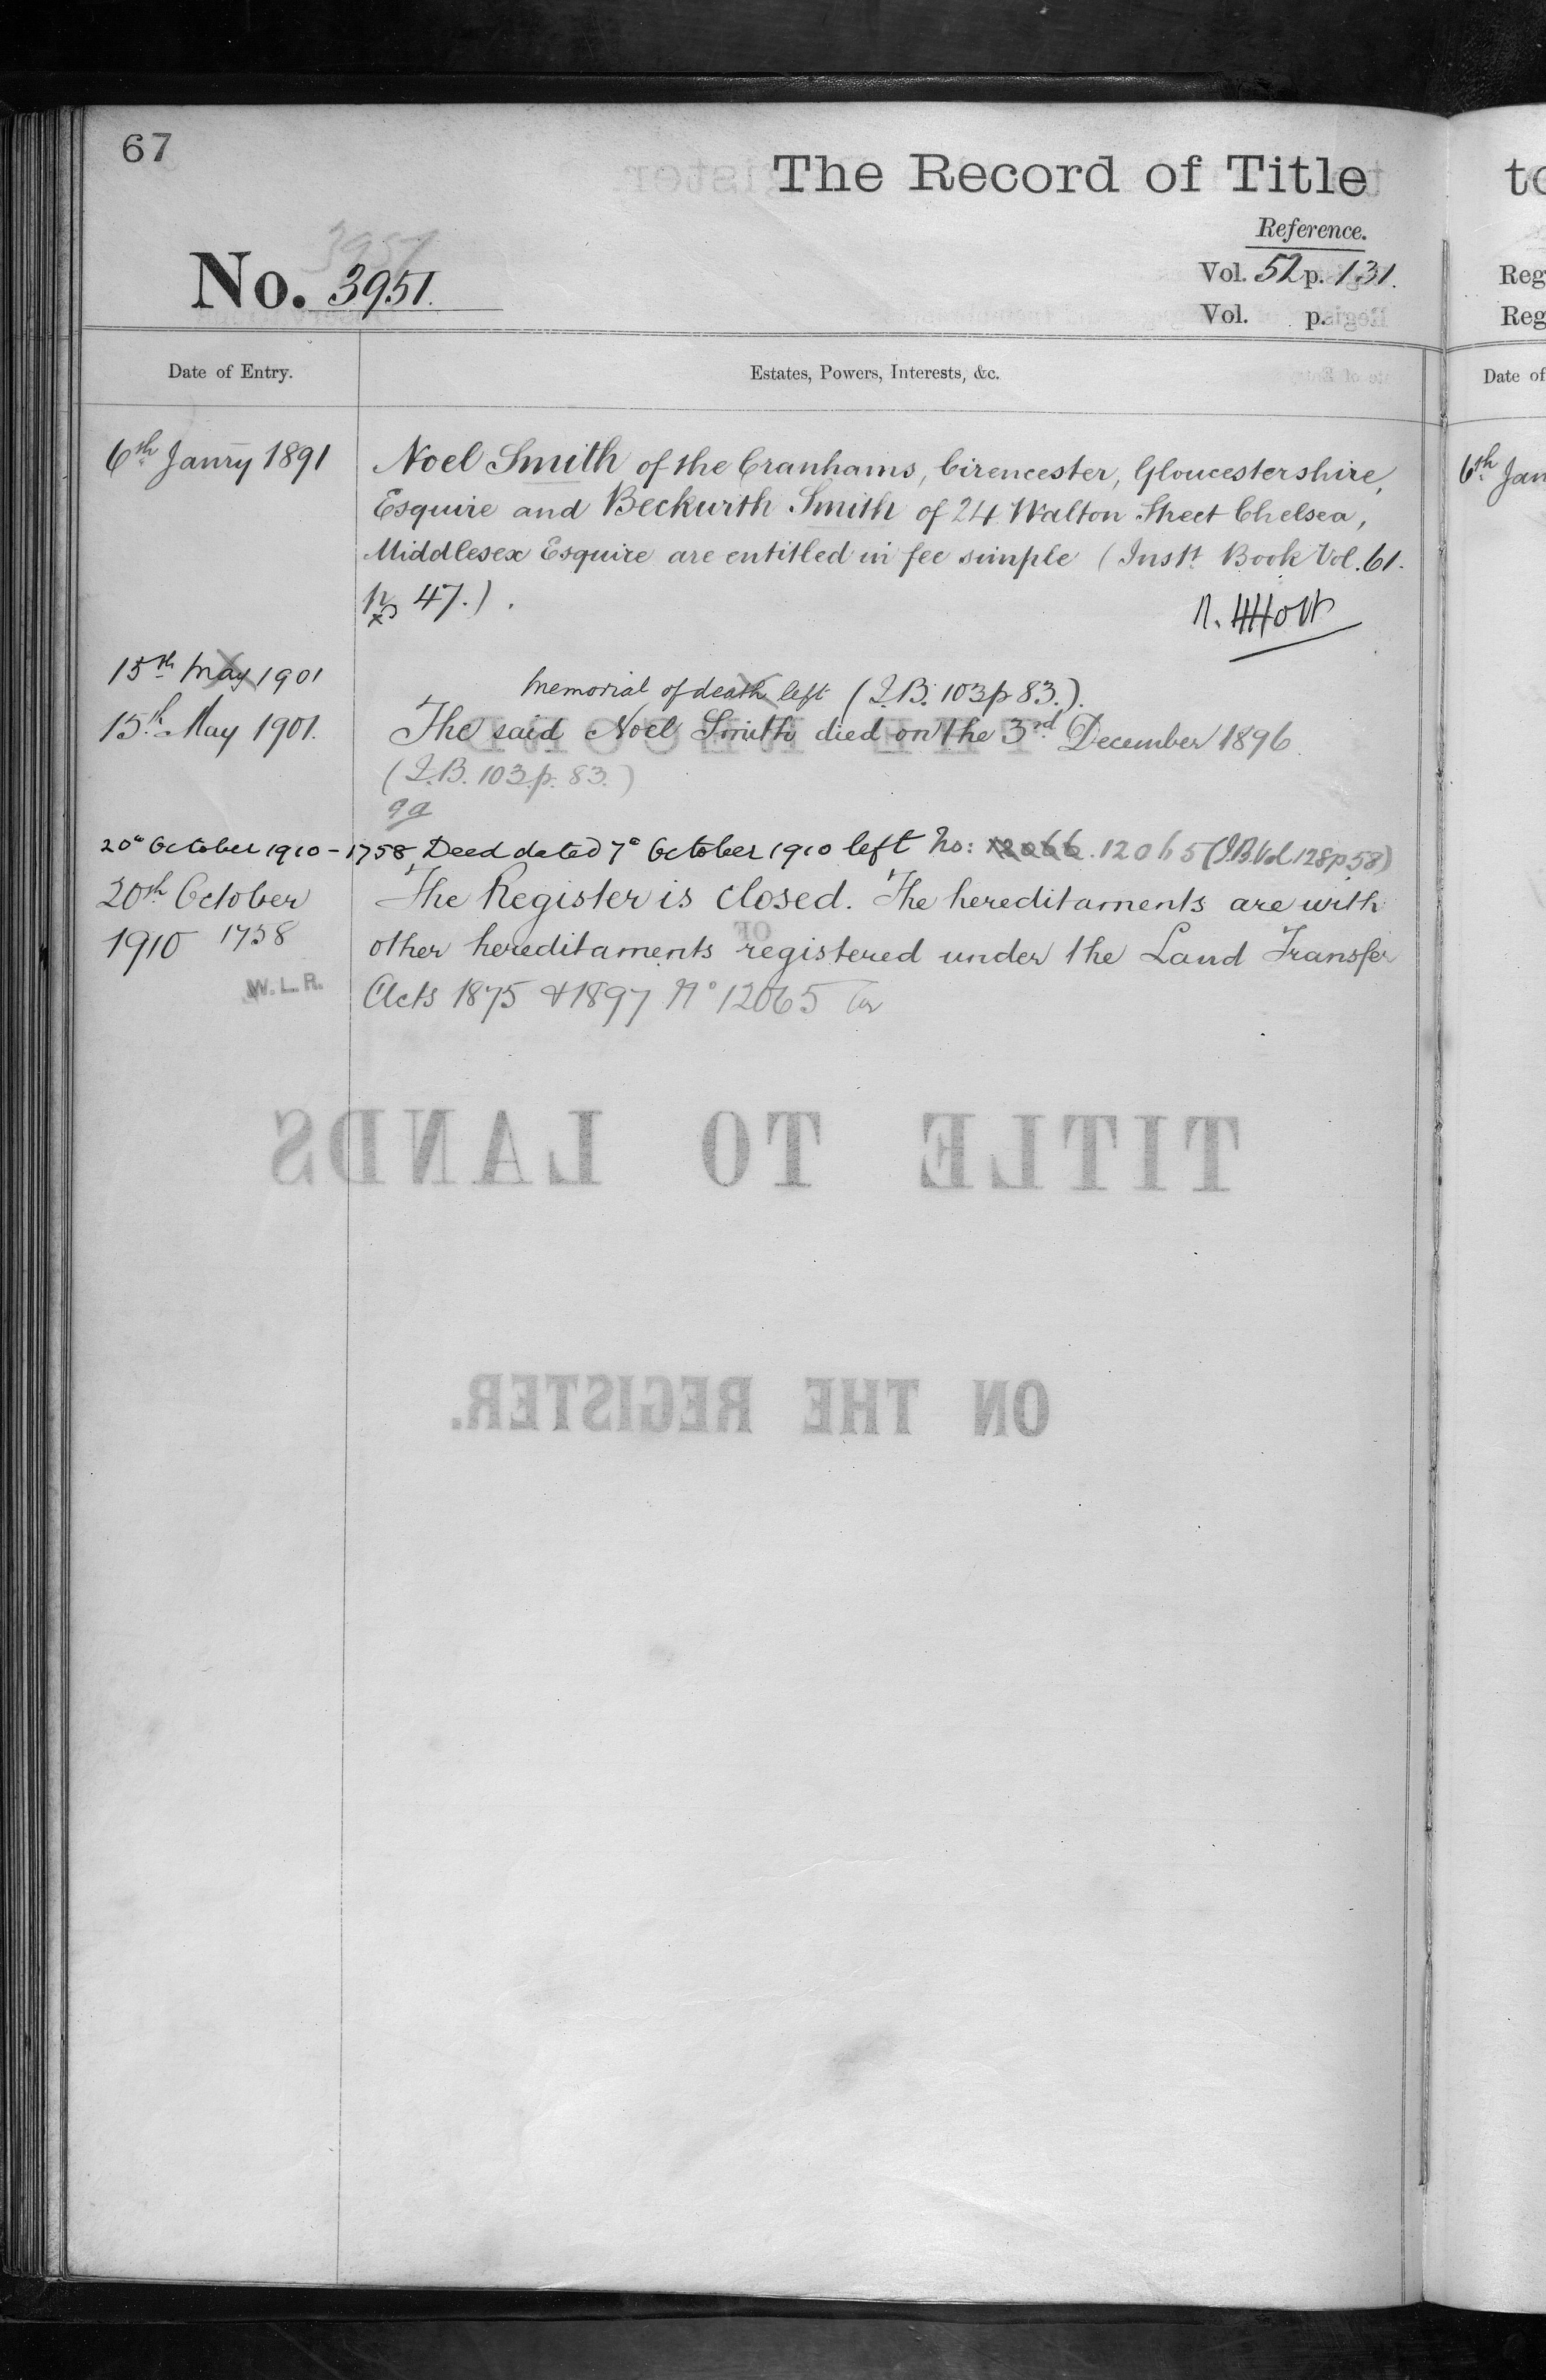 67
The Record of Title
Reference.
3951
No. 3951.
Vol. 52 p. 131.
Vol. p.
Date of Entry.
Estates, Powers, Interests, &c.
6th Janry 1891
Noel Smith of the Cranhams, Cirencester, Gloucestershire,
Esquire and Beckwith Smith of 24 Walton Street Chelsea,
Middlesex Esquire are entitled in fee simple (Inst Book Vol. 61.
p 47.).
15th May 1901
Memorial of death left (I.B. 103 p 83.).
15th May 1901.
The said Noel Smith died on the 3rd December 1896
(I.B. 103 p. 83.)
20 October 1910 - 1758 Deed dated 7 October 1910 left No: 12066. 12065 (I.B. Vol 128 p 58)
20th October
1910 1758
The Register is closed. The hereditaments are with
other hereditaments registered under the Land Transfer
Acts 1875 & 1897 No 12065
W.L.R.
THE RECORD
OF
TITLE TO LANDS
ON THE REGISTER.
to
Reg
Reg
Date of
6th Jan